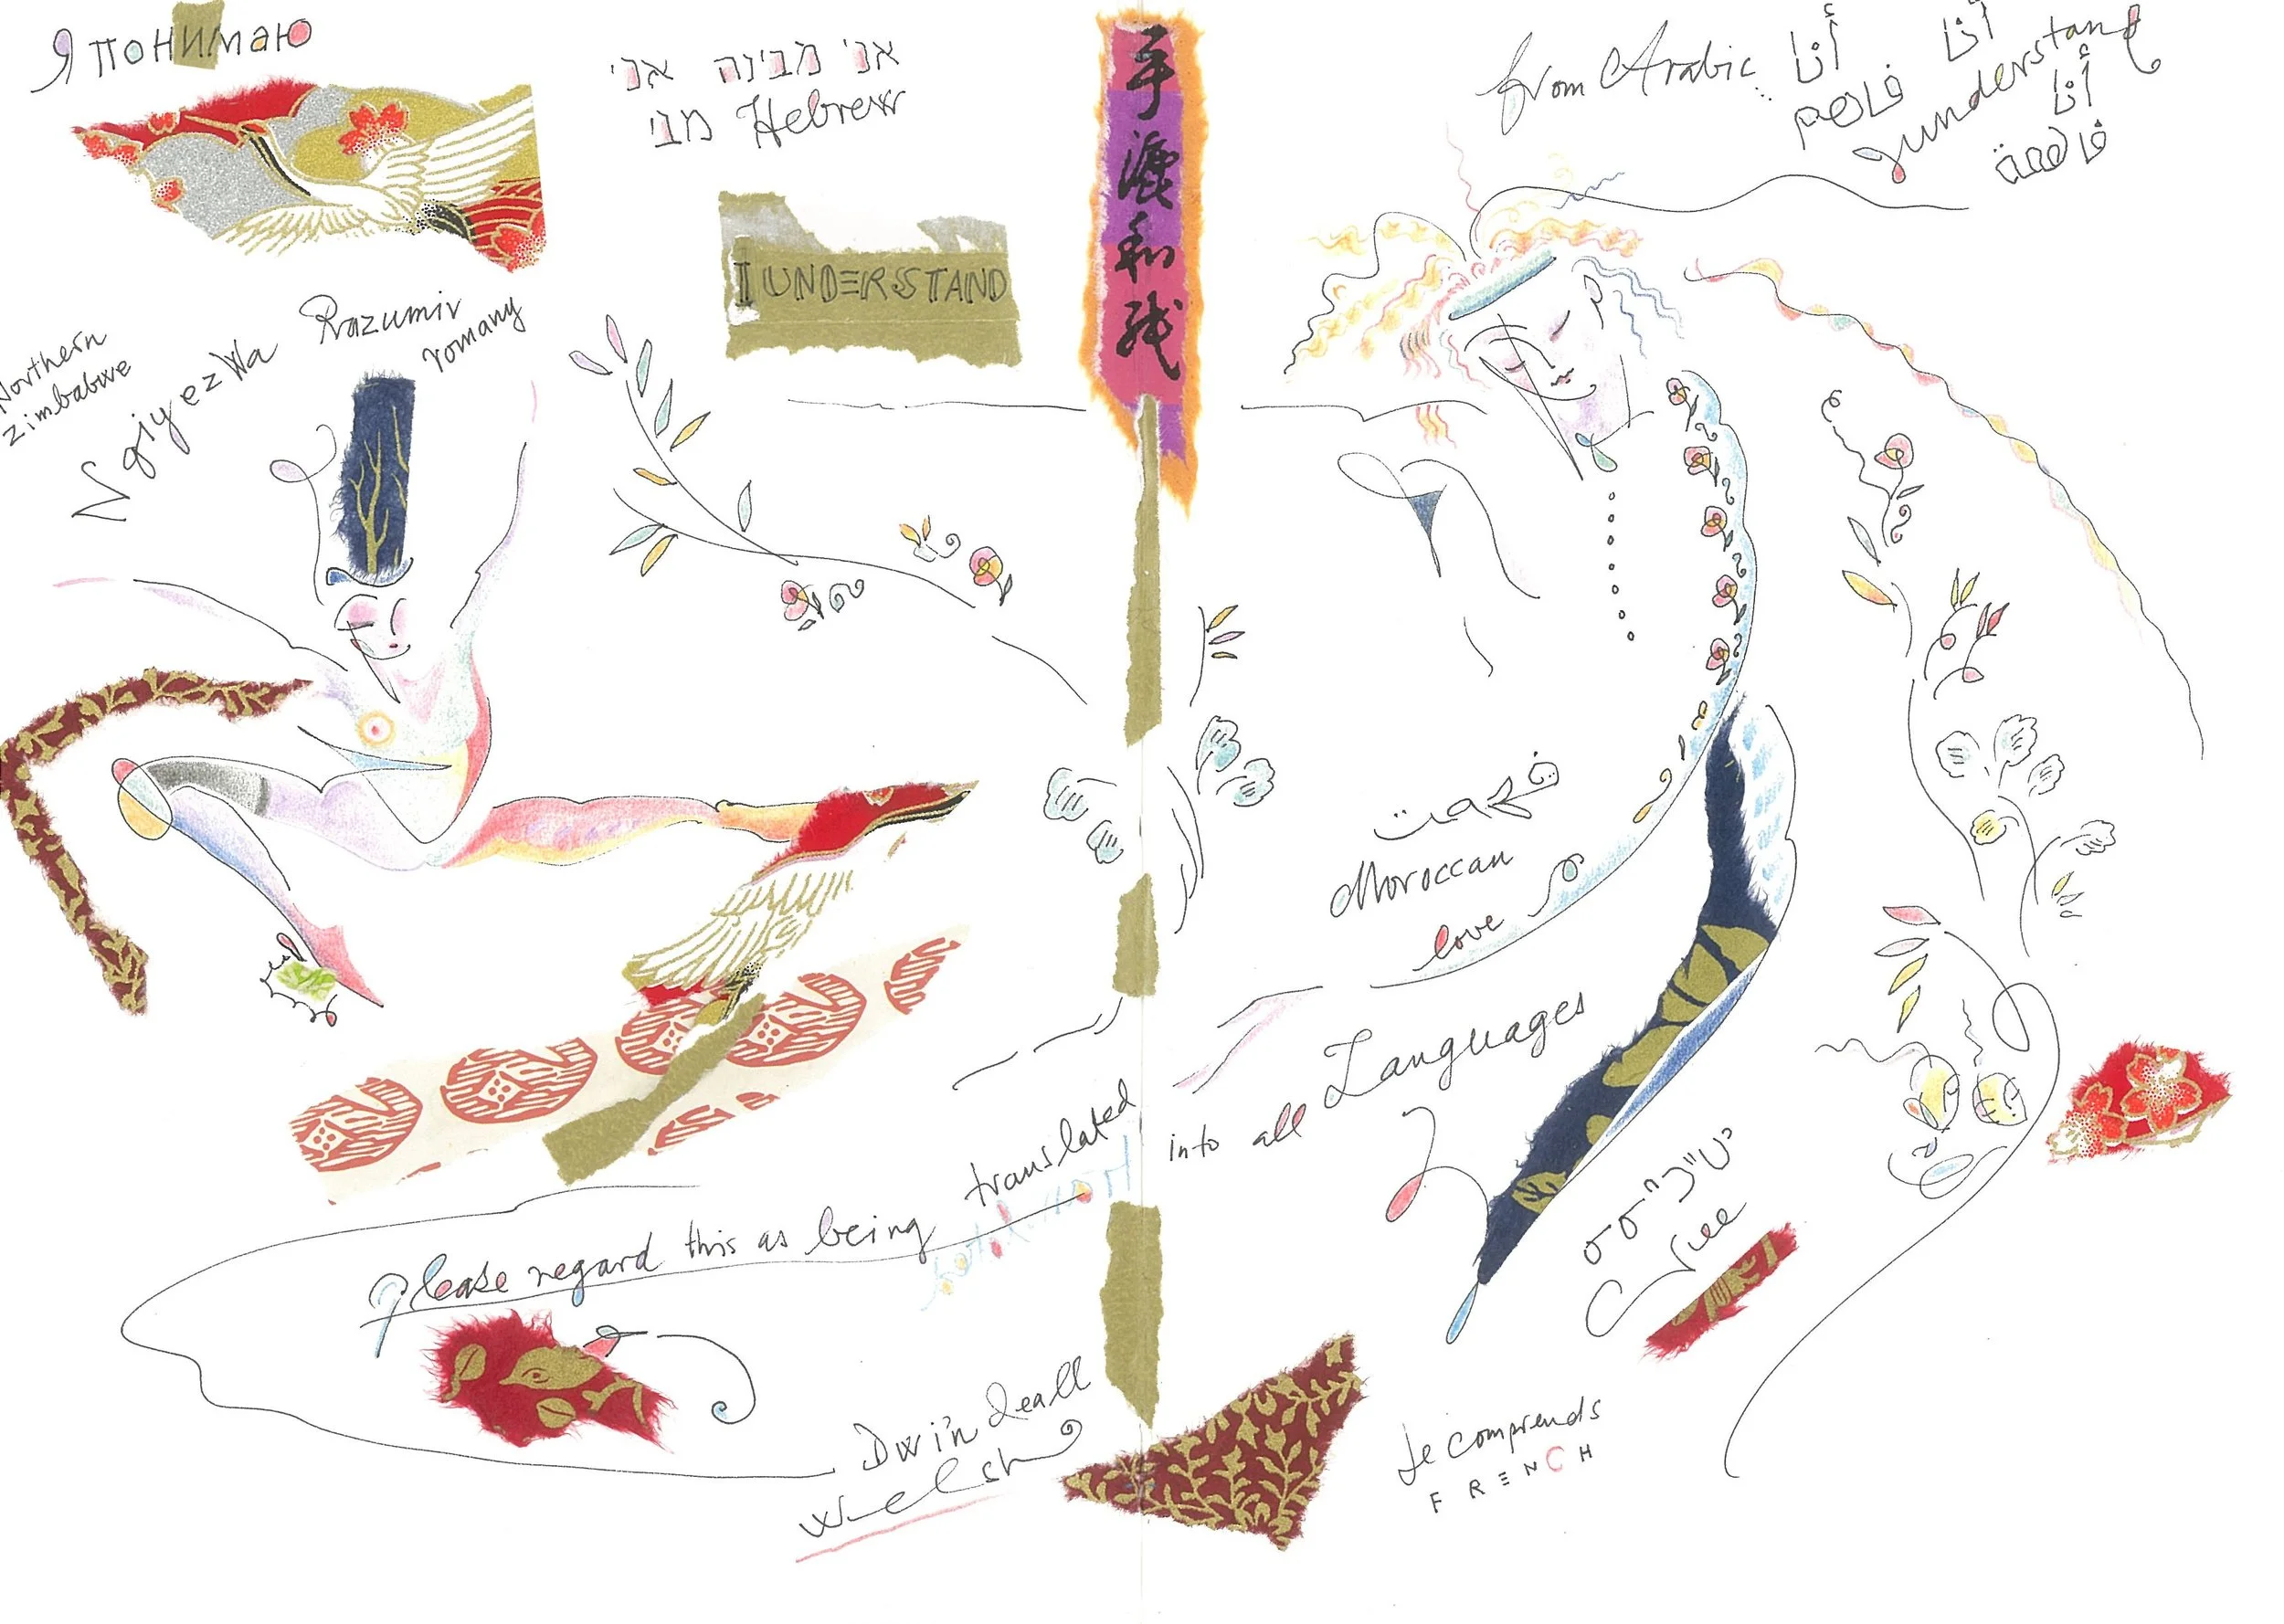 Я понимаю
אני מבינה אני
מבי Hebrew
from Arabic...
أنا
أنا
فاهم
I understand
أنا
فاهمة
手漉和紙
I UNDERSTAND
Northern
Zimbabwe
Ngiyezwa
Razumiv
romany
فهمت
Moroccan
love
Please regard this as being translated into all Languages
Cree
Dwi'n deall
Welsh
Je comprends
FRENCH